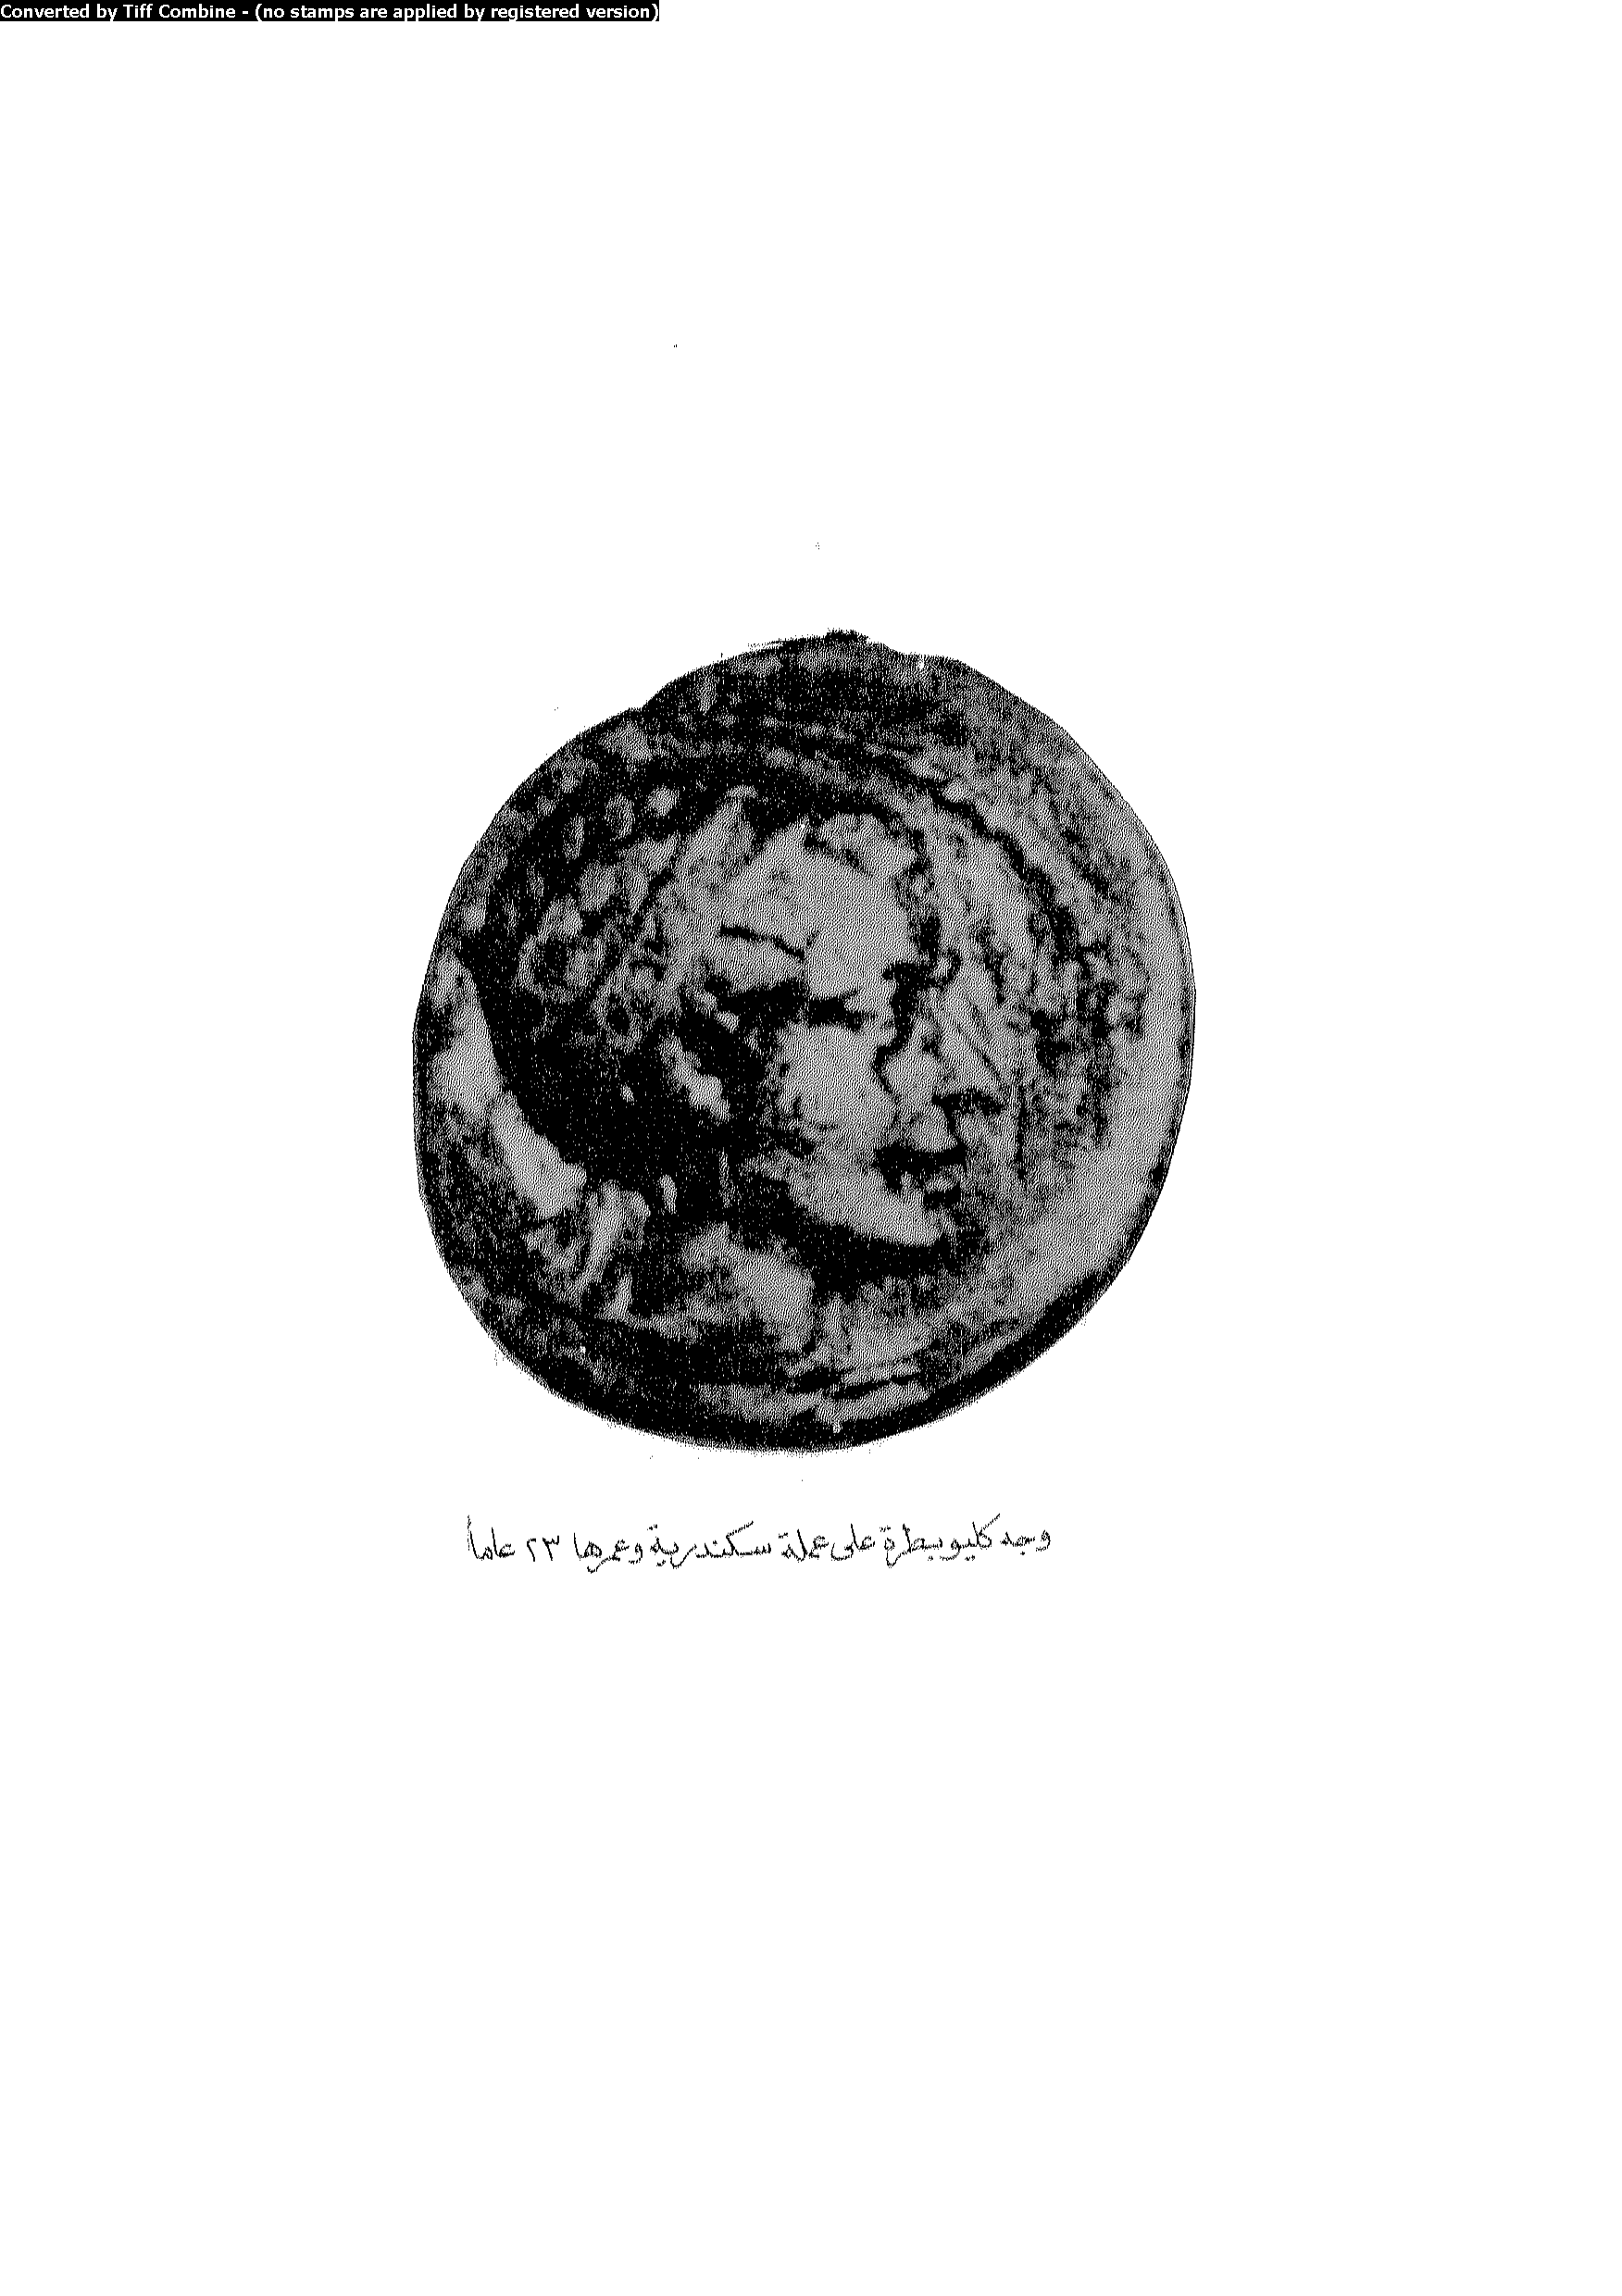 Converted by Tiff Combine - (no stamps are applied by registered version)
وجه كليوبطرة على عملة سكندرية وعمرها ٢٣ عاماً